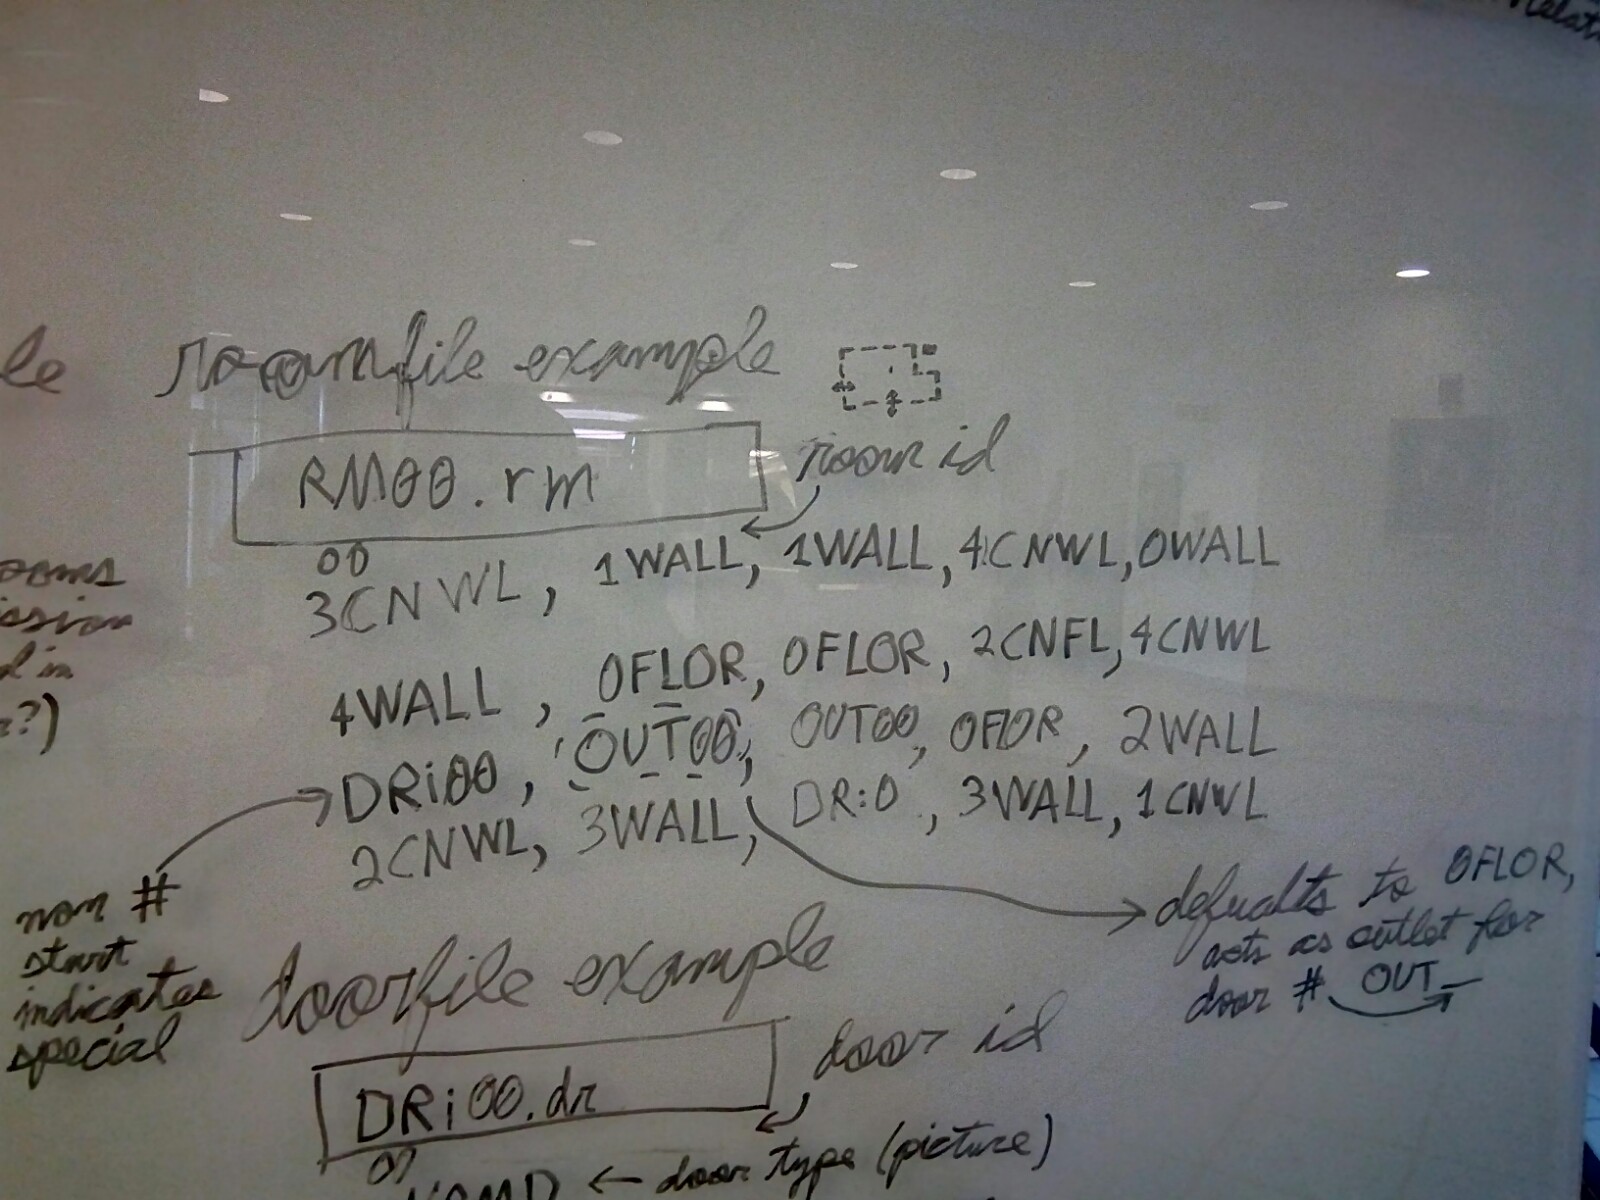 le roomfile example
room id
RM00.rm
00
3CNWL, 1WALL, 1WALL, 4CNWL, 0WALL
4WALL, 0FLOR, 0FLOR, 2CNFL, 4CNWL
DRi00, OUT00, OUT00, 0FLOR, 2WALL
2CNWL, 3WALL, DRi0, 3WALL, 1CNWL
ooms
ission
d in
?)
non #
start
indicates
special
defualts to 0FLOR,
acts as outlet for
door # OUT_
doorfile example
door id
DRi00.dr
← door type (picture)